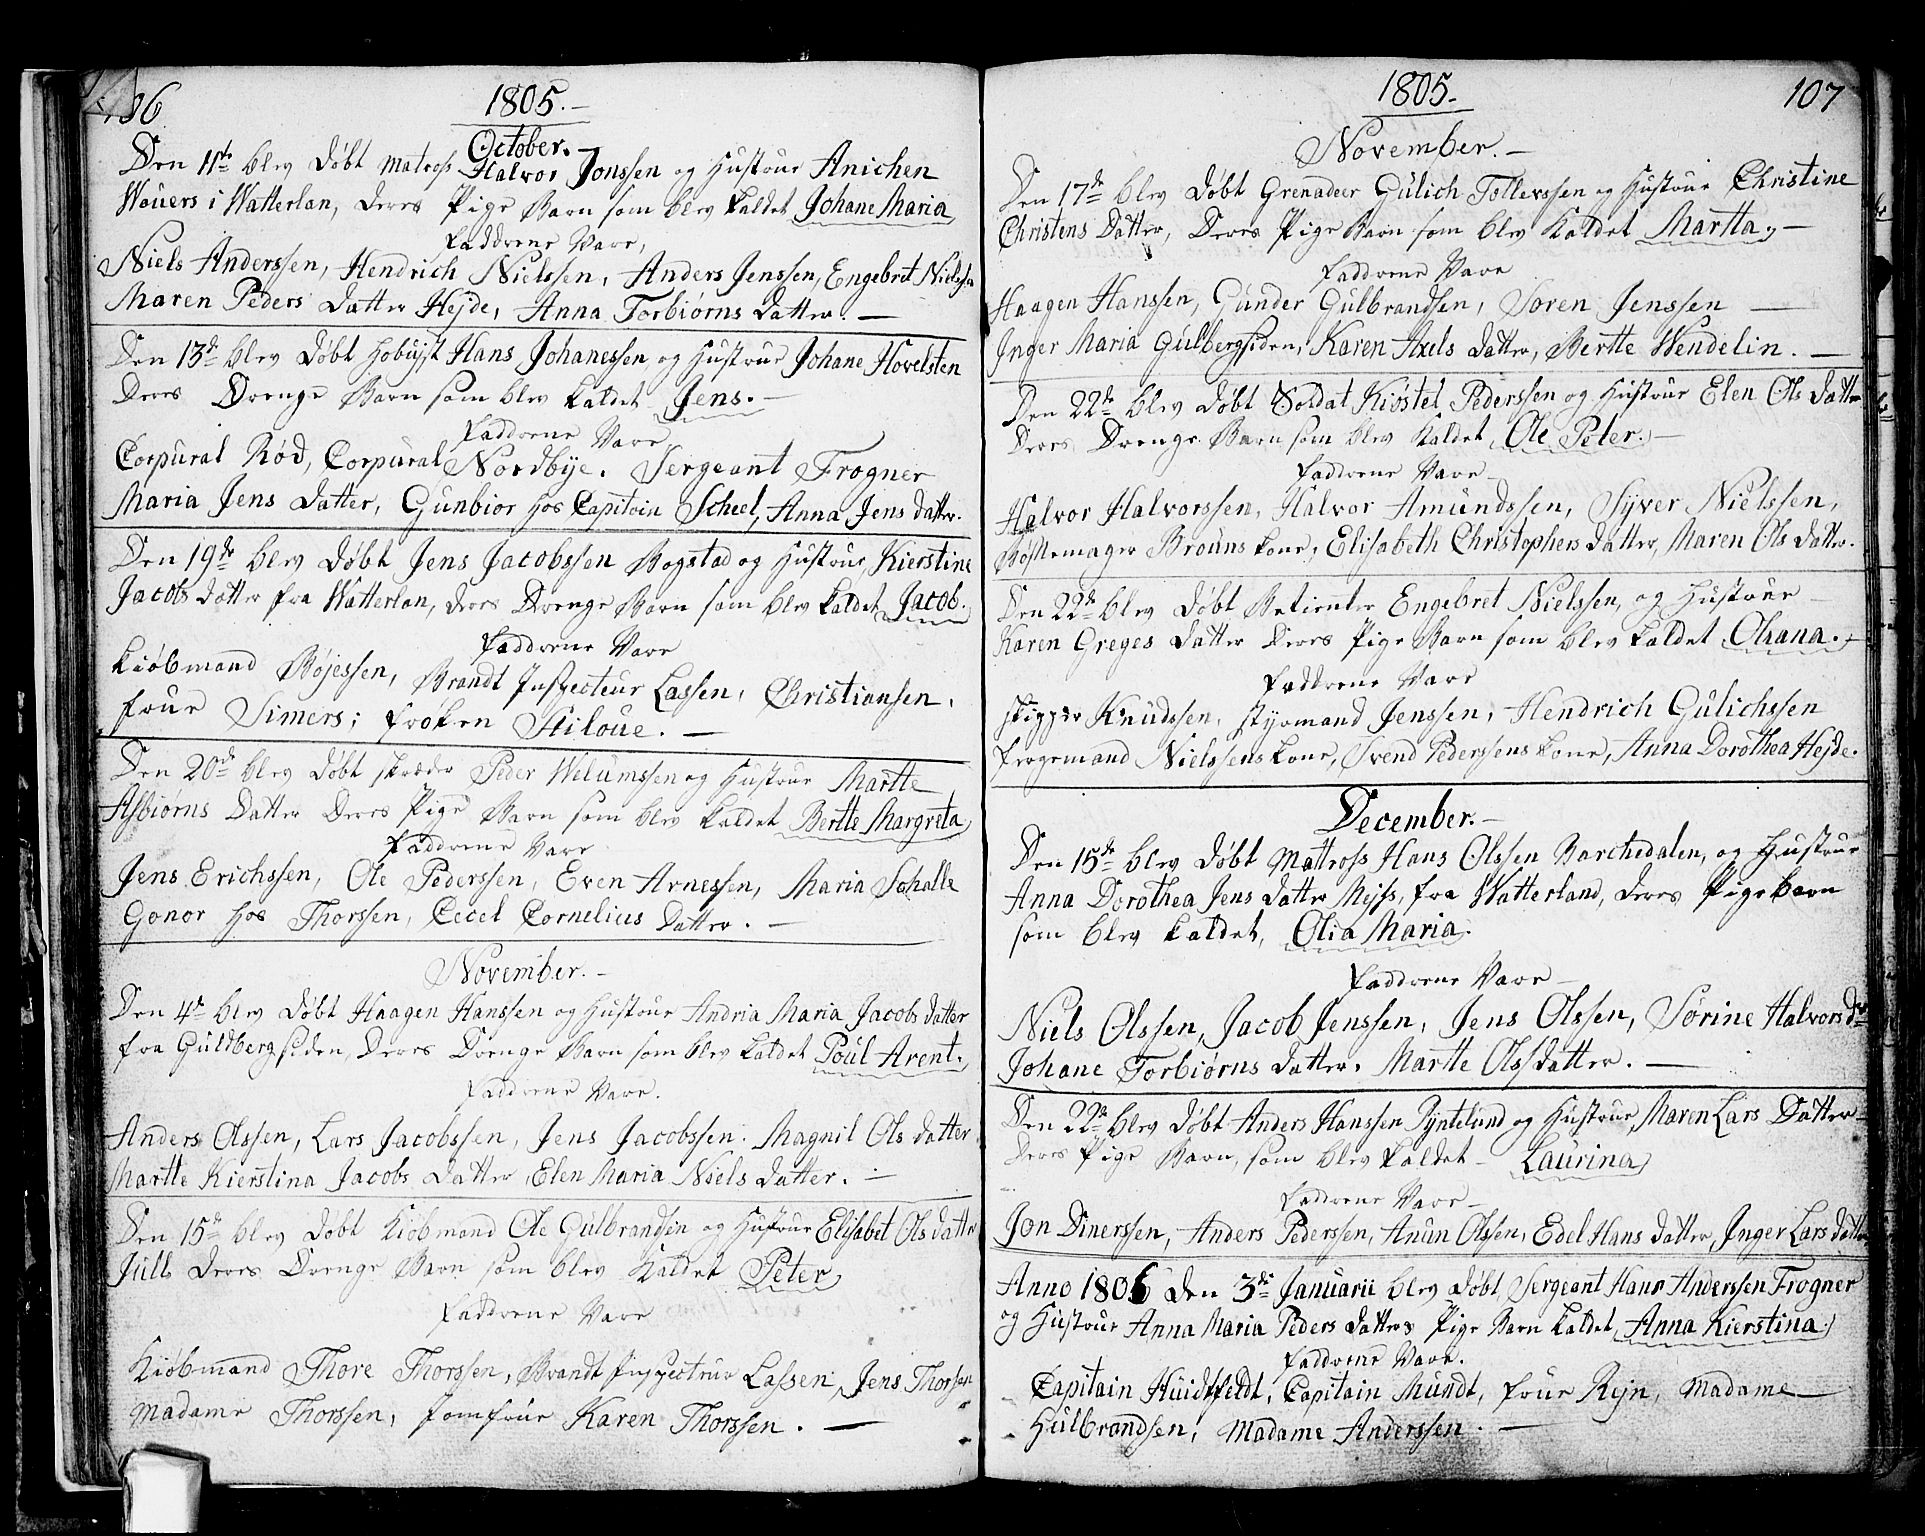 106
1805.
October.
Den 11te blev Døbt Matros Halvor Jonssen og Hustrue Anichen
Wouers i Watterlan, Deres Pige Barn som blev kaldet Johane Maria
Faddrene Vare,
Niels Anderssen, Hendrich Nielssen, Anders Jenssen, Engebret Nielssen
Maren Peders Datter Hejde, Anna Torbiørns Datter.
Den 13de blev Døbt Hans Johanessen og Hustrue Johane Hovelsten
Deres Drenge Barn som blev kaldet Jens.
Faddrene Vare
Corpural Rød, Corpural Nordbÿe. Sergeant Frogner
Maria Jens Datter, Gunbior hos Capitain Scheel, Anna Jens datter.
Den 19de blev Døbt Jens Jacobssen Bogstad og Hustrue Kierstine
Jacobs datter fra Watterlan, deres Drenge Barn som blev kaldet Jacob.
Faddrene Vare
Kiøbmand Bøjessen, Brandt Inspecteur Lassen, Christiansen,
frue Simers; frøken Stiloue.
Den 20de blev Døbt skræder Peder Welumssen og Hustrue Martte
Asbiørns Datter Deres Pige Barn som blev kaldet Bertte Margreta
Faddrene Vare
Jens Erichssen, Ole Pederssen, Even Arnessen, Maria Schalle
Gonor hos Thorssen, Cecel Cornelius Datter.
November.
Den 4de blev Døbt Haagen Hanssen og Hustrue Andria Maria Jacobs datter
fra Guldberg siden, Deres Drenge Barn som blev kaldet Poul Arent.
Faddrene Vare.
Anders Olssen, Lars Jacobssen, Jens Jacobssen. Magnil Ols datter
Martte Kierstina Jacobs Datter, Elen Maria Niels Datter.
Den 15de blev Døbt Kiøbmand Ole Gulbrandsen og Hustrue Elisabet Ols datter
Juill Deres Drenge Barn som blev kaldet Peter
Faddrene Vare
Kiøbmand Thore Thorssen, Brandt Inspecteur Lassen, Jens Thorssen
Madame Thorssen, Jomfrue Karen Thorssen.
1805.
107
November.
Den 17de blev Døbt Grenadeer Gulich Tollevssen og Hustrue Christine
Christens Datter, Deres Pige Barn som blev kaldet Martta.
Faddrene Vare
Haagen Hanssen, Gunder Gulbrandsen, Soren Jenssen
Inger Maria Gulbergsiden, Karen Axels datter, Bertte Wendelin.
Den 22de blev Døbt Soldat Kiøstel Pederssen og Hustrue Elen Ols Datter
Deres Drenge Barn som blev kaldet Ole Peter.
Faddrene Vare
Halvor Halvorssen, Halvor Amundssen, Syver Nielssen,
Bøssemager Brouns kone, Elisabeth Christophers datter, Maren Ols datter.
Den 22de blev Døbt Betienter Engebret Nielssen, og Hustrue
Karen Greges Datter Deres Pige Barn som blev kaldet Olsana.
Faddrene Vare
skipper Knudssen, styrmand Jenssen, Hendrich Gulichssen
færgemand Nielssens kone, Svend Pederssens kone, Anna Dorothea Hejde.
December.
Den 15de blev Døbt Mattross Hans Olssen Barchedalen, og Hustrue
Anna Dorothea Jens datter Mejss, fra Watterland, deres Pige barn
som blev kaldet, Olia Maria.
Faddrene Vare
Niels Olssen, Jacob Jenssen, Jens Olssen, Sørine Halvors dr
Johane Torbiørns datter. Martte Olsdatter.
Den 22de blev Døbt Anders Hanssen Pyntelund og Hustrue, Maren Lars Datter
Deres Pige Barn, som blev kaldet Laurina
Faddrene Vare
Jon Dinerssen, Anders Pederssen, Anun Olssen, Edel Hans datter, Inger Lars datter
Anno 1806 den 3de Januarii blev Døbt Sergeant Hans Anderssen Frogner
og Hustrue Anna Maria Peders datters Pige Barn kaldet Anna Kierstina.
Faddrene Vare.
Capitain Huidtfeldt, Capitain Mundt, frue Rejn, Madame
Hulbrandsen, Madame Anderssen.